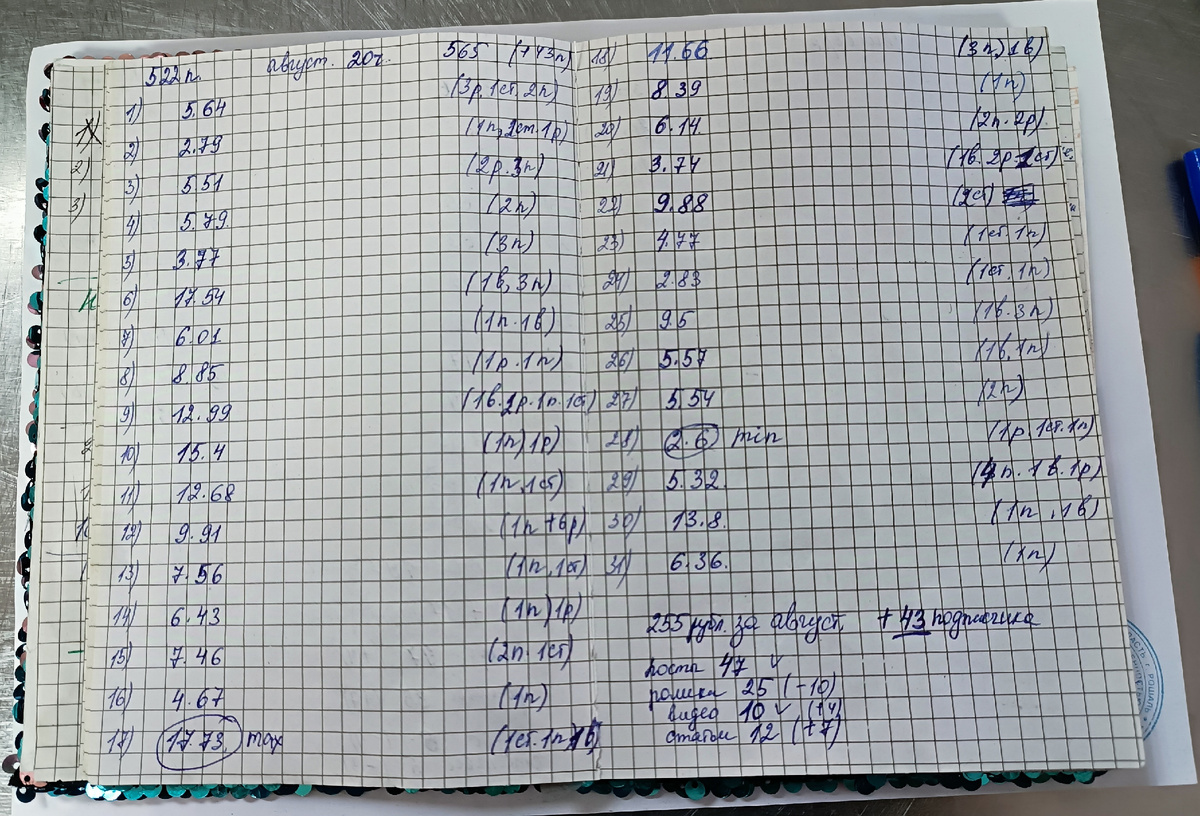 522п. август. 20г. 565 (+43п)
1) 5.64 (3р.1ст.2п)
2) 2.79 (1п,1ст.1р)
3) 5.51 (2р.3п)
4) 5.79. (2п)
5) 3.77 (3п)
6) 17.54 (1в,3п)
7) 6.01 (1п.1в)
8) 8.85 (1р.1п)
9) 12.99 (1в.2р.1п.1ст)
10) 15.4 (1п)1р)
11) 12.68 (1п,1ст)
12) 9.91 (1п+6р)
13) 7.56 (1п,1ст)
14) 6.43 (1п)1р)
15) 7.46 (2п.1ст)
16) 4.67 (1п)
17) 17.73 max (1ст.1п1в)
18) 11.66 (3п,1в)
19) 8.39 (1п)
20) 6.14. (2п.2р).
21) 3.74 (1в.2р.1ст)
22) 9.88 (2ст)
23) 4.77 (1ст.1п)
24) 2.83 (1ст.1п)
25) 9.5 (1в.3п)
26) 5.57 (1в,1п)
27) 5.54 (2п)
28) 2.6 min (1р.1ст.1п)
29) 5.32. (4п.1в.1р)
30) 13.8. (1п,1в)
31) 6.36. (1п)
255 рубл. за август. +43 подписчика
посты 47 ✓
ролики 25 (-10)
видео 10 ✓ (+4)
статьи 12 (+7)
1)
2)
3)